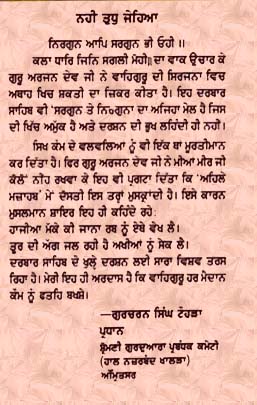 ਨਹੀ ਤੁਧੁ ਜੇਹਿਆ
ਨਿਰਗੁਨ ਆਪਿ ਸਰਗੁਨ ਭੀ ਓਹੀ ॥
ਕਲਾ ਧਾਰਿ ਜਿਨਿ ਸਗਲੀ ਮੋਹੀ॥ ਦਾ ਵਾਕ ਉਚਾਰ ਕੇ
ਗੁਰੂ ਅਰਜਨ ਦੇਵ ਜੀ ਨੇ ਵਾਹਿਗੁਰੂ ਦੀ ਸਿਰਜਨਾ ਵਿਚ
ਅਥਾਹ ਖਿਚ ਸ਼ਕਤੀ ਦਾ ਜ਼ਿਕਰ ਕੀਤਾ ਹੈ। ਇਹ ਦਰਬਾਰ
ਸਾਹਿਬ ਵੀ 'ਸਰਗੁਨ ਤੇ ਨਿਰਗੁਨਾ ਦਾ ਅਜਿਹਾ ਮੇਲ ਹੈ ਜਿਸ
ਦੀ ਖਿੱਚ ਅਮੁੱਕ ਹੈ ਅਤੇ ਦਰਸ਼ਨ ਦੀ ਭੁਖ ਲਹਿੰਦੀ ਹੀ ਨਹੀ।
ਸਿਖ ਕੌਮ ਦੇ ਵਲਵਲਿਆਂ ਨੂੰ ਵੀ ਇਕ ਥਾਂ ਮੂਰਤੀਮਾਨ
ਕਰ ਦਿੱਤਾ ਹੈ। ਫਿਰ ਗੁਰੂ ਅਰਜਨ ਦੇਵ ਜੀ ਨੇ ਮੀਆਂ ਮੀਰ ਜੀ
ਕੋਲੋਂ ਨੀਂਹ ਰਖਵਾ ਕੇ ਇਹ ਵੀ ਪ੍ਰਗਟਾ ਦਿੱਤਾ ਕਿ 'ਅਹਿਲੇ
ਮਜ਼ਾਹਬ' ਮੇਂ ਦੋਸਤੀ ਇਸ ਤਰ੍ਹਾਂ ਮੁਸਕ੍ਰਾਂਦੀ ਹੈ। ਇਸੇ ਕਾਰਨ
ਮੁਸਲਮਾਨ ਸ਼ਾਇਰ ਇਹ ਹੀ ਕਹਿੰਦੇ ਰਹੇ:
ਹਾਜੀਆ ਮੱਕੇ ਕੀ ਜਾਨਾ ਰਬ ਨੂੰ ਏਥੇ ਵੇਖ ਲੈ।
ਤੂਰ ਦੀ ਅੱਗ ਜਲ ਰਹੀ ਹੈ ਅਖੀਆਂ ਨੂੰ ਸੇਕ ਲੈ।
ਦਰਬਾਰ ਸਾਹਿਬ ਦੇ ਖੁਲ੍ਹੇ ਦਰਸ਼ਨ ਲਈ ਸਾਰਾ ਵਿਸ਼ਵ ਤਰਸ
ਰਿਹਾ ਹੈ। ਮੇਰੀ ਇਹ ਹੀ ਅਰਦਾਸ ਹੈ ਕਿ ਵਾਹਿਗੁਰੂ ਹਰ ਮੈਦਾਨ
ਕੌਮ ਨੂੰ ਫਤਹਿ ਬਖਸ਼ੇ।
—ਗੁਰਚਰਨ ਸਿੰਘ ਟੌਹੜਾ
ਪ੍ਰਧਾਨ
ਸ਼੍ਰੋਮਣੀ ਗੁਰਦੁਆਰਾ ਪ੍ਰਬੰਧਕ ਕਮੇਟੀ
(ਹਾਲ ਨਜ਼ਰਬੰਦ ਖਾਲੜਾ)
ਅੰਮ੍ਰਿਤਸਰ